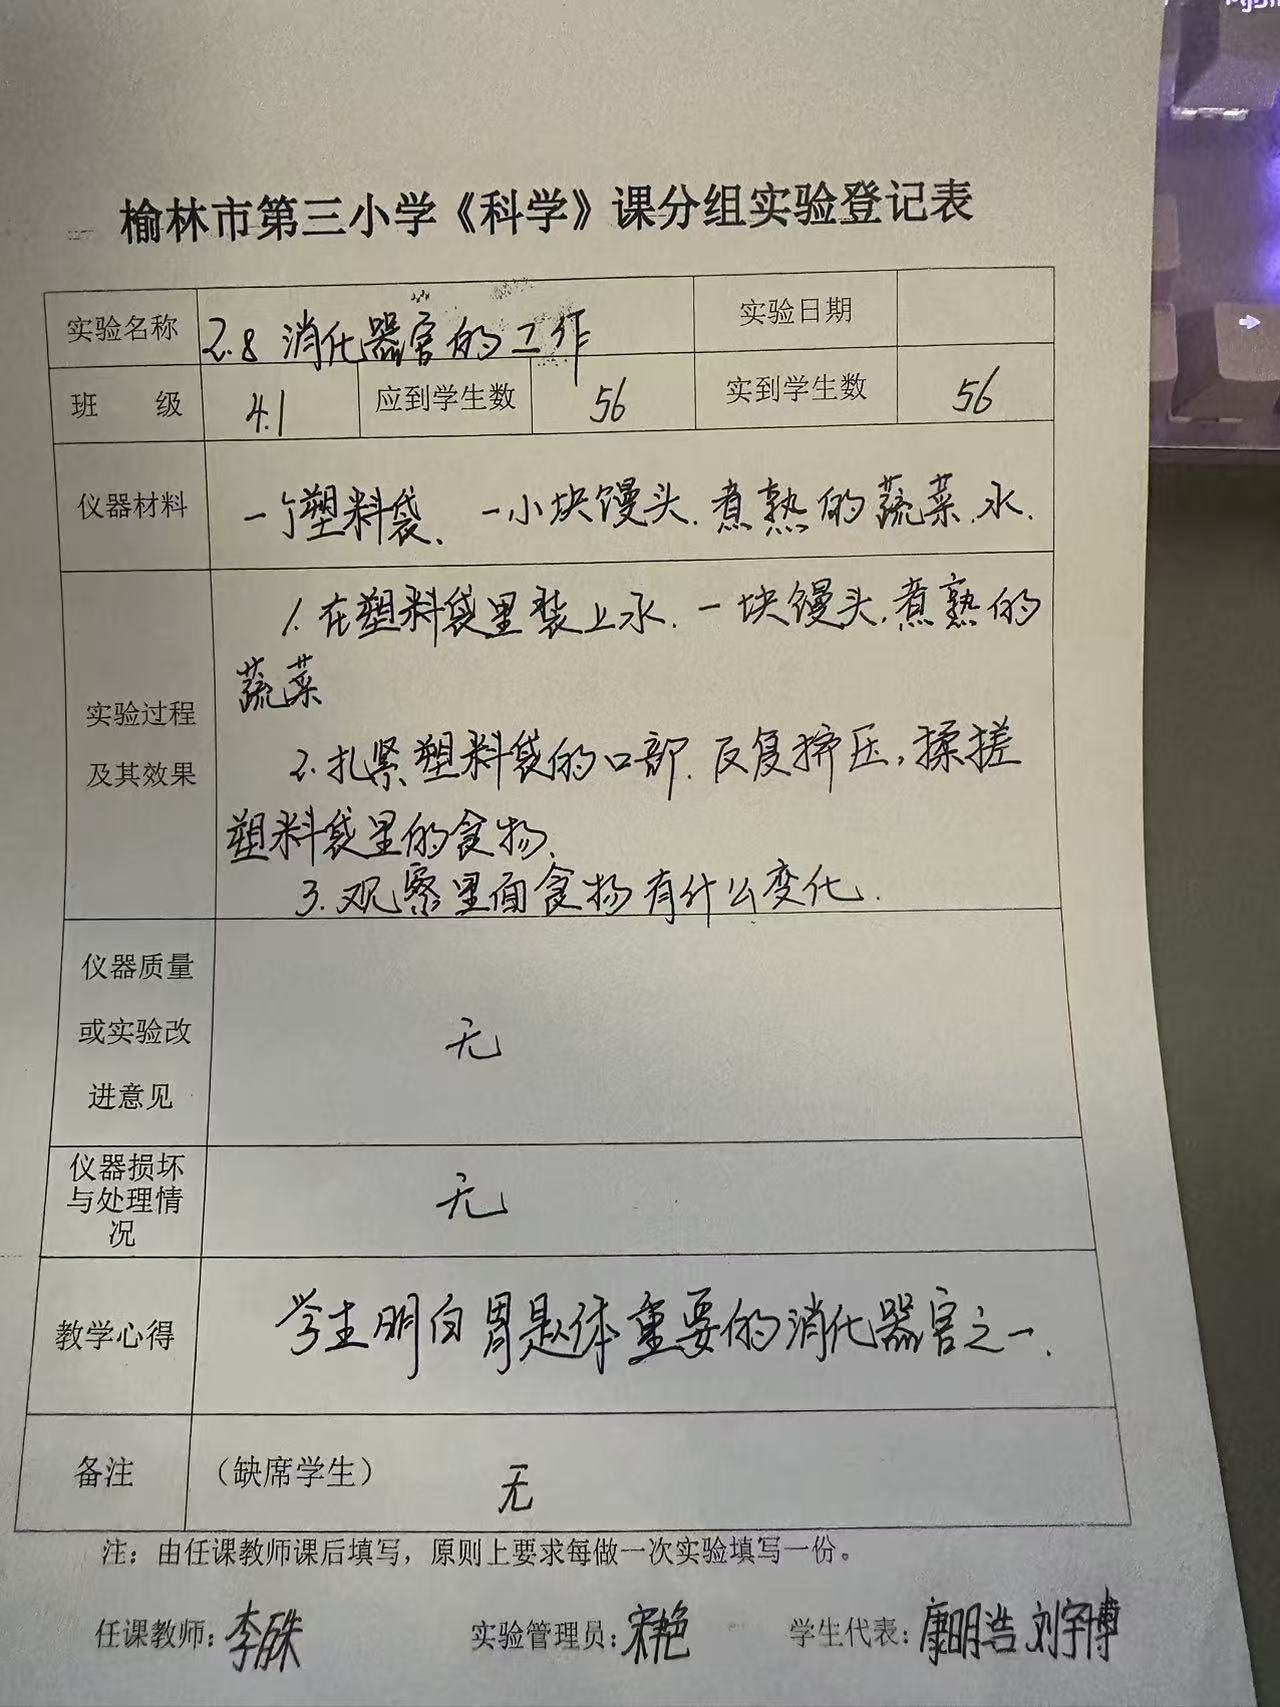 榆林市第三小学《科学》课分组实验登记表
实验名称 2.8 消化器官的工作 实验日期
班 级 4.1 应到学生数 56 实到学生数 56
仪器材料 一个塑料袋、一小块馒头、煮熟的蔬菜、水.
1. 在塑料袋里装上水、一块馒头、煮熟的
蔬菜
实验过程
2. 扎紧塑料袋的口部、反复挤压,揉搓
及其效果
塑料袋里的食物、
3. 观察里面食物有什么变化.
仪器质量
或实验改
进意见
无
仪器损坏
与处理情
况
无
教学心得 学生明白胃是人体重要的消化器官之一、
备注 (缺席学生) 无
注:由任课教师课后填写,原则上要求每做一次实验填写一份。
任课教师:李 实验管理员:宋艳 学生代表:康明浩 刘宇博